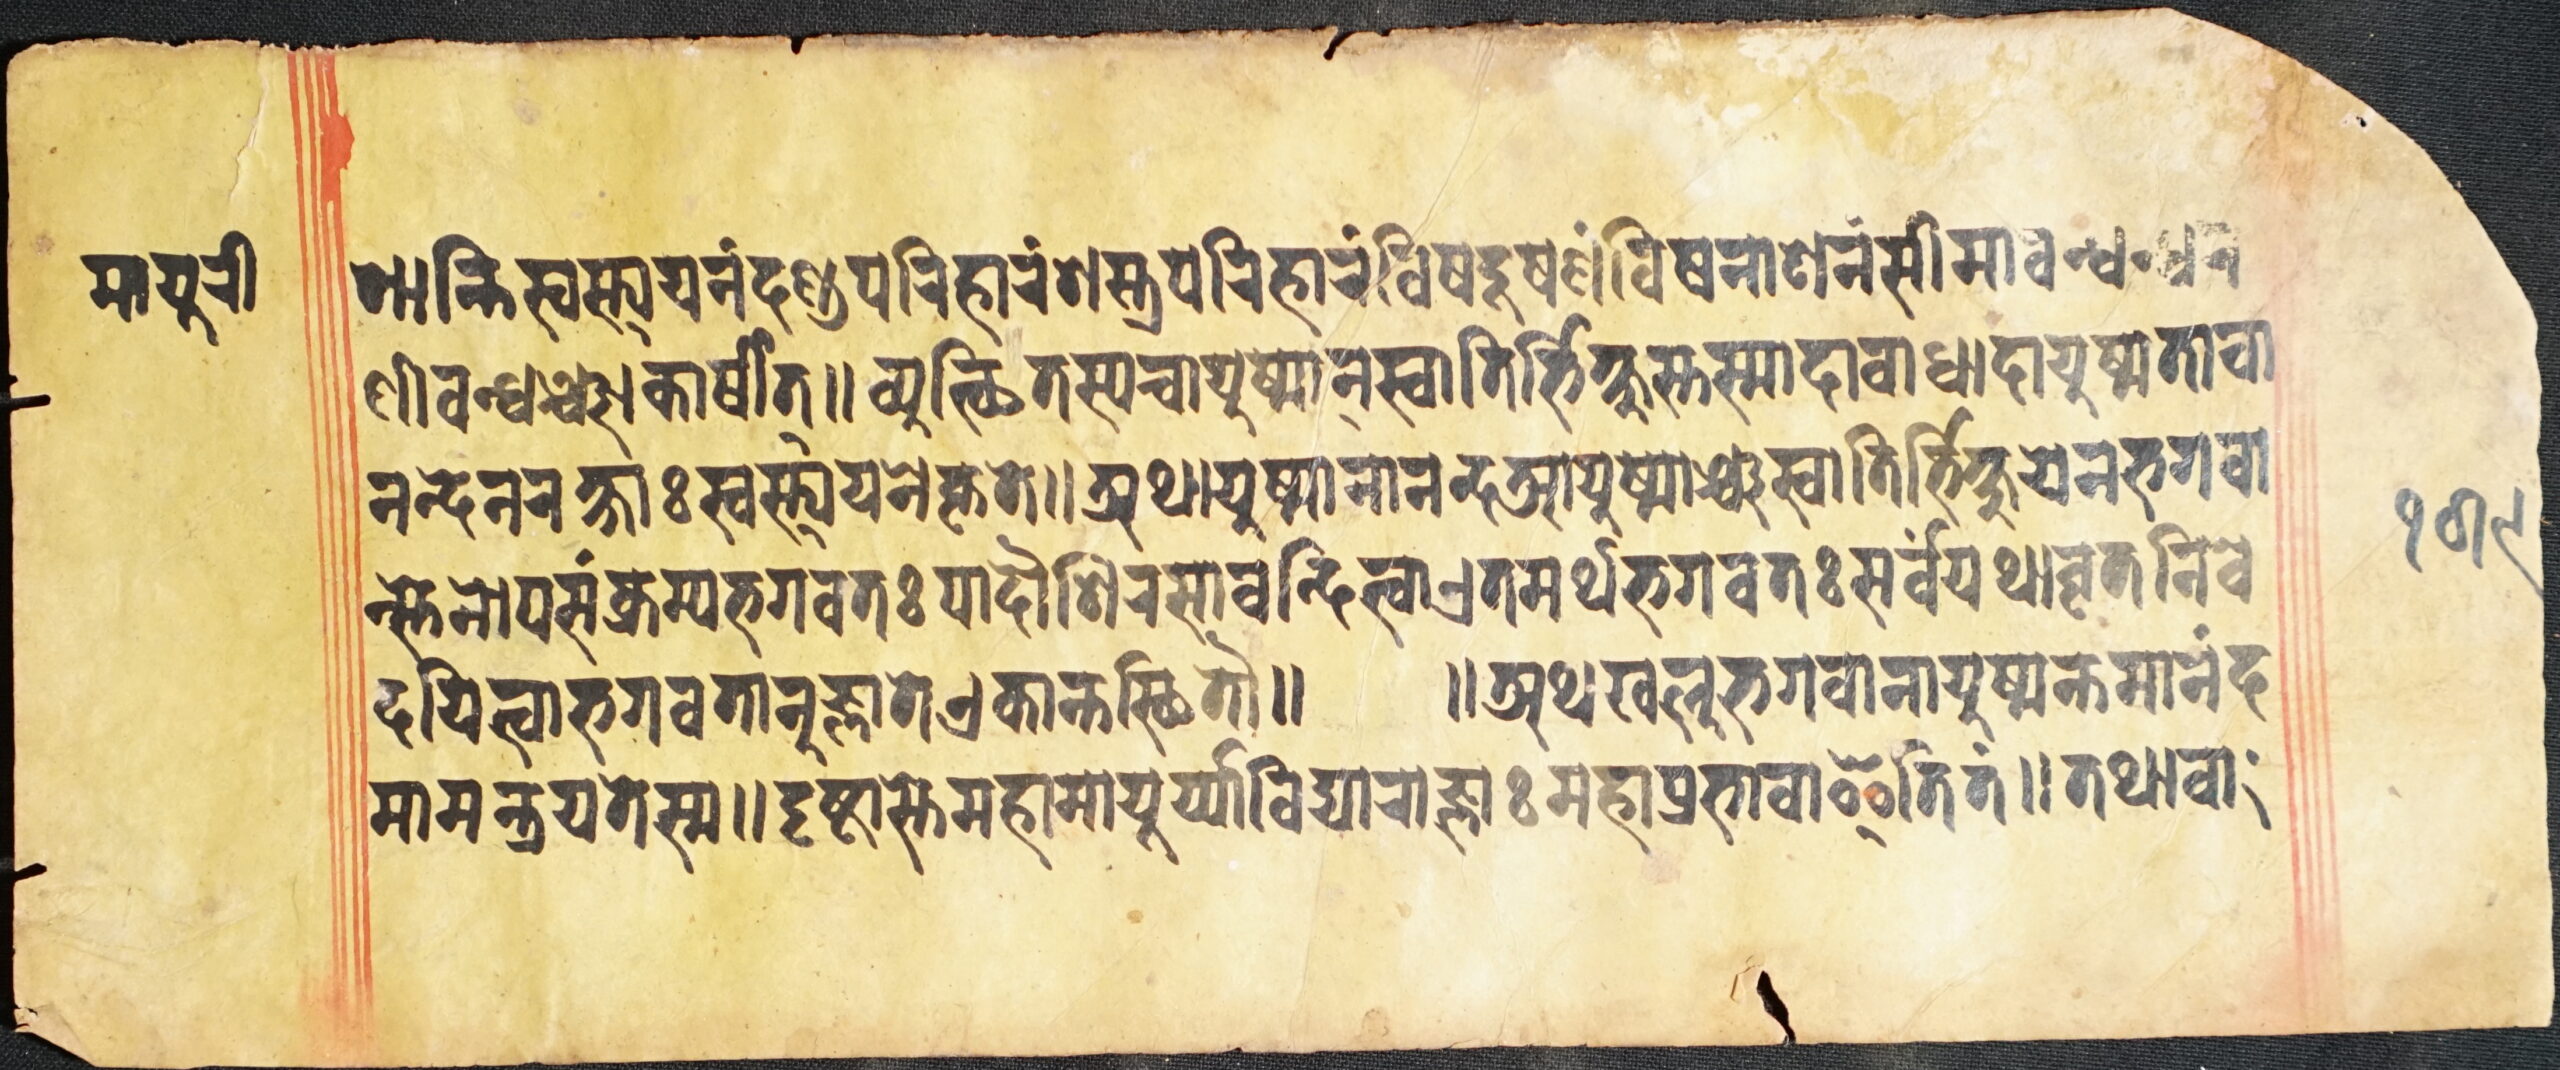 मायुरी
शान्तिस्वस्त्ययनंदण्डपरिहारंशस्त्रपरिहारंविषदूषणंविषनाशनंसीमाबन्धन्धर
णीबन्धञ्चाकार्षीत्॥ व्युत्थितस्यचायुष्मान्स्वातिर्भिक्षुस्तस्मादाबाधादायुष्मताचा
नन्देनरक्षाःस्वस्त्ययनेकृते॥अथायुष्मानानन्दआयुष्मांश्चस्वातिर्भिक्षुयेनभगवा
न्स्तेनोपसंक्रम्यभगवतःपादौशिरसावन्दित्वाएतमर्थंभगवतःसर्वंयथावृतनिवे
दयित्वाभगवतानुज्ञातेएकान्तस्थितौ॥ ॥अथखलुभगवानायुष्मन्तमानंद
मामन्त्रयतेस्म॥दृष्टास्तेमहामायुर्य्याविद्याराज्ञाःमहाप्रभावाॐतितं॥तथावाः